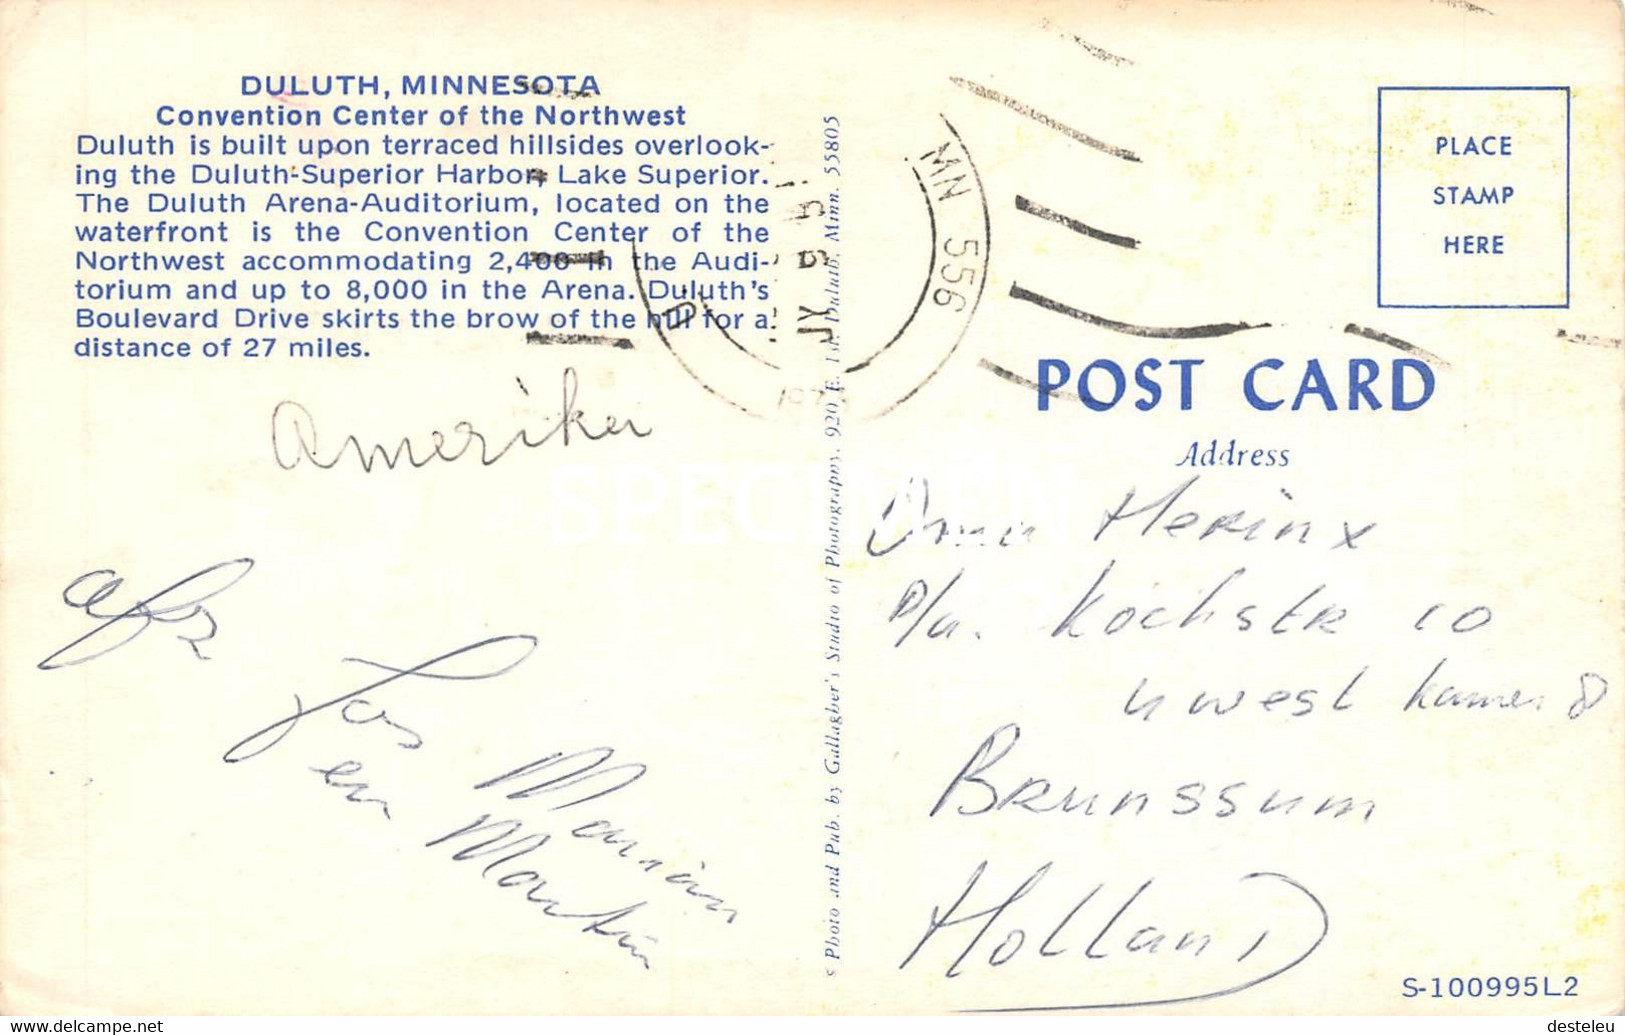 DULUTH, MINNESOTA
Convention Center of the Northwest
Duluth is built upon terraced hillsides overlook-
ing the Duluth-Superior Harbor, Lake Superior.
The Duluth Arena-Auditorium, located on the
waterfront is the Convention Center of the
Northwest accommodating 2,400 in the Audi-
torium and up to 8,000 in the Arena. Duluth's
Boulevard Drive skirts the brow of the hill for a
distance of 27 miles.
Amerika
afz
Jos Marian
en Martin
© Photo and Pub. by Gallagher's Studio of Photography, 920 E. 1st. Duluth, Minn. 55805
MN 556
PLACE
STAMP
HERE
POST CARD
Address
Oma Herinx
p/a. Kochstr 10
West kamer 8
Brunssum
Holland
S-100995L2
SPECIMEN
www.delcampe.net
desteleu